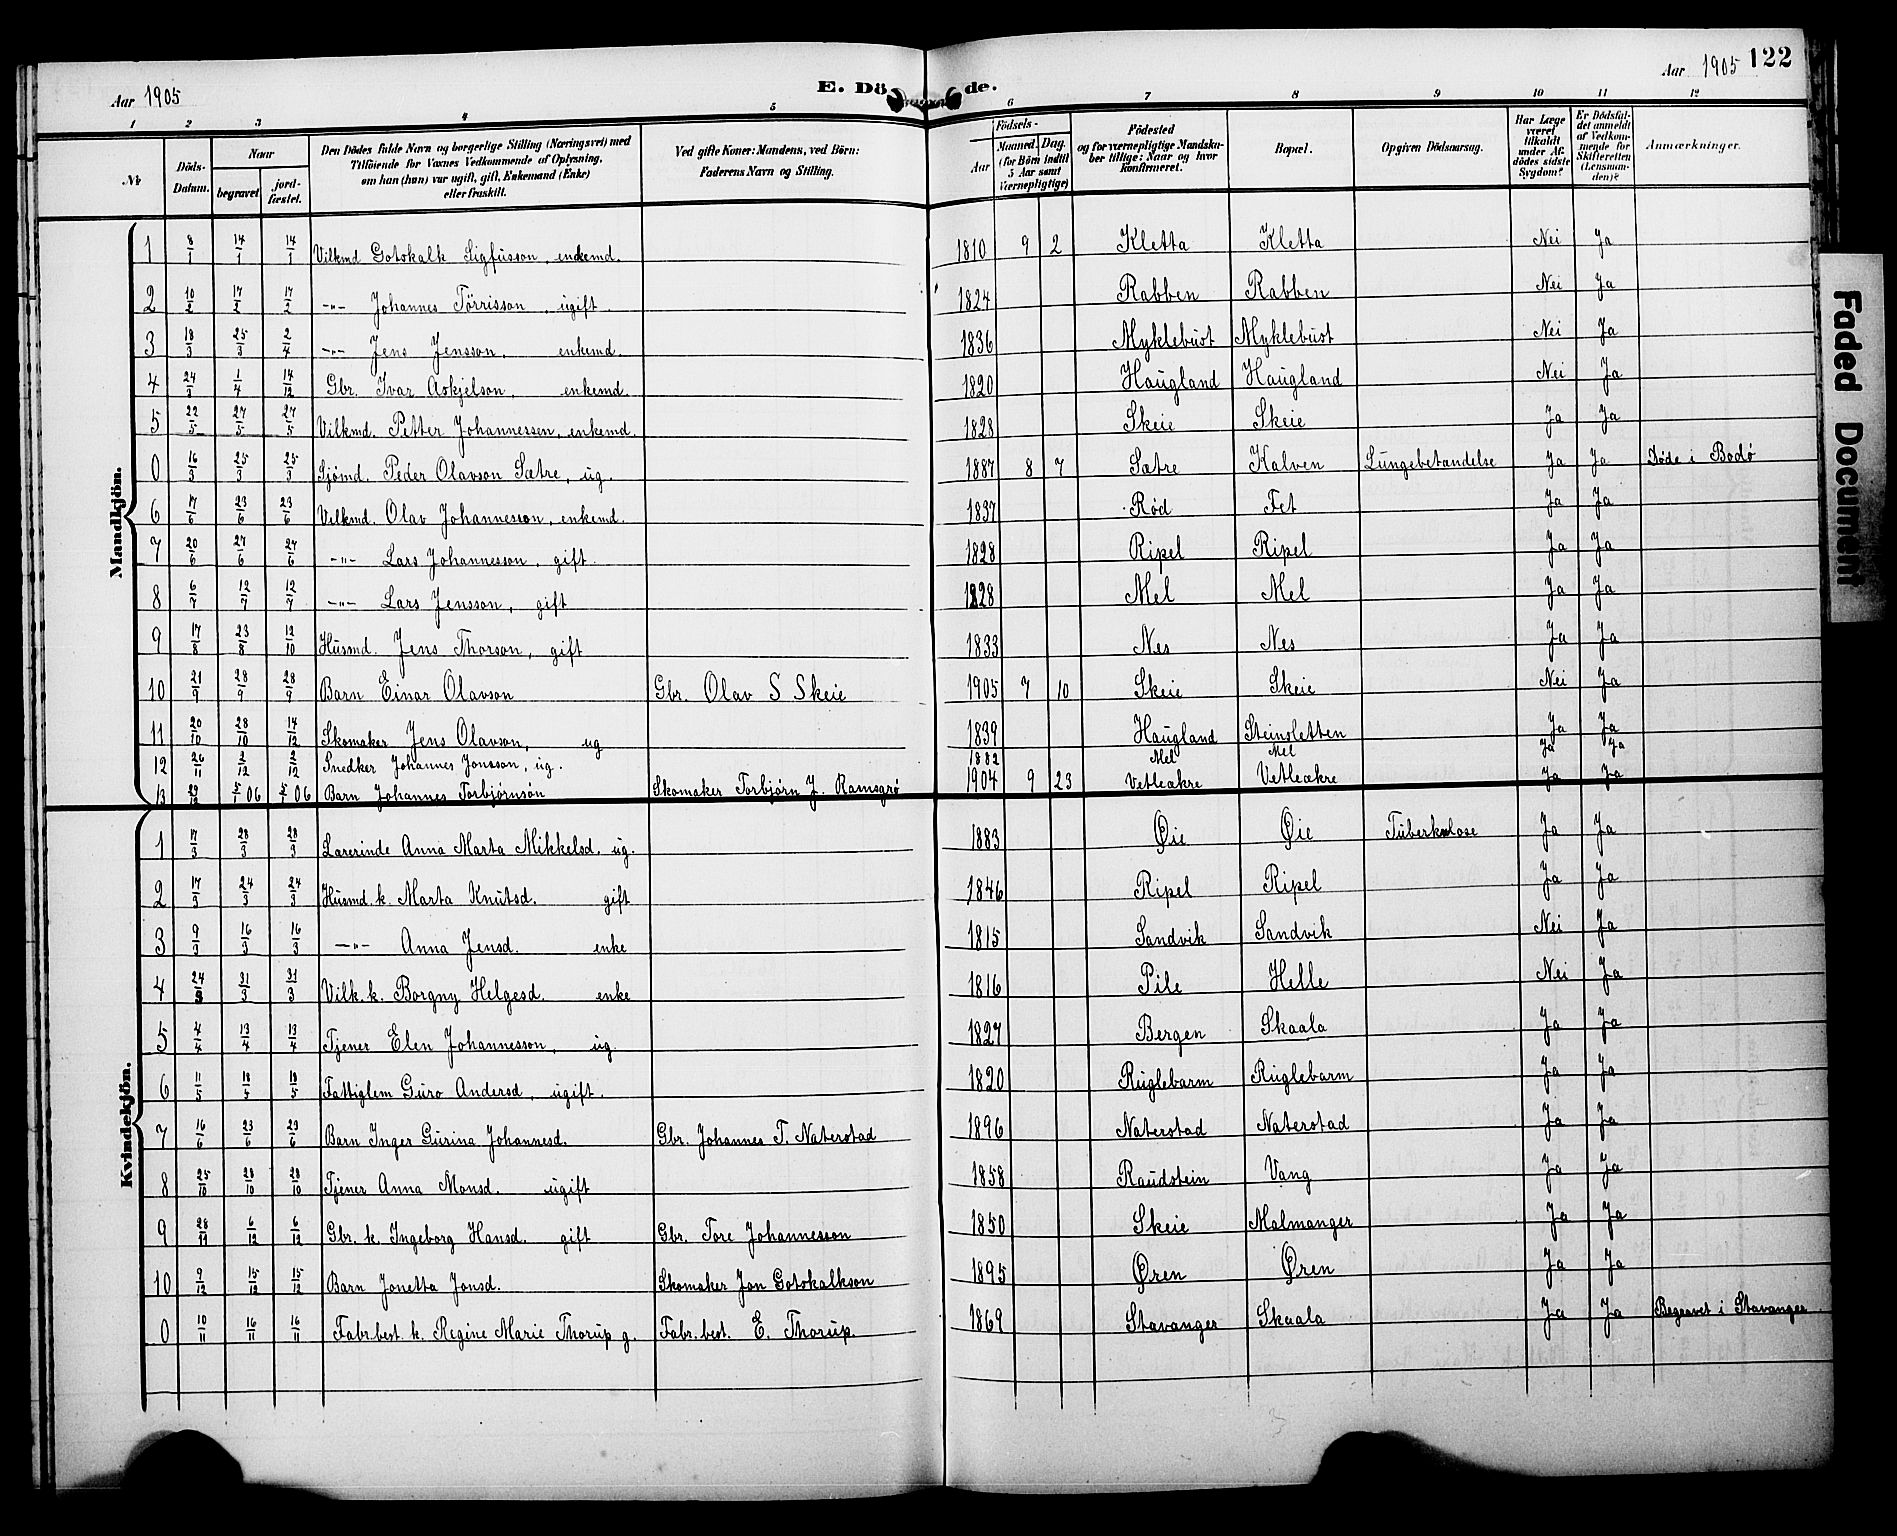 Aar 1905 E. Dö de. Aar 1905 122
1 2 3 4 5 6 7 8 9 10 11 12
№ Döds-Datum. Naar begravet jordfæstet. Den Dödes fulde Navn og borgerlige Stilling (Næringsvei) med Tilföiende for Voxnes Vedkommende af Oplysning, om han (hun) var ugift, gift, Enkemand (Enke) eller fraskilt. Ved gifte Koner: Mandens, ved Börn: Faderens Navn og Stilling. Födsels- Aar Maaned. Dag. (for Börn indtil 5 Aar samt Værnepligtige) Födested og for værnepligtige Mandskaber tillige: Naar og hvor konfirmeret. Bopæl. Opgiven Dödsaarsag. Har Læge været tilkaldt under Afdödes sidste Sygdom? Er Dödsfaldet anmeldt af Vedkommende for Skifteretten (Lensmanden)? Anmærkninger.
Mandkjön.
1 8/1 14/1 14/1 Vilkmd Gotskalk Sigfusson, enkemd. 1810 9 2 Kletta Kletta Nei Ja
2 10/2 17/2 17/2 -"- Johannes Törrisson, ugift. 1824 Rabben Rabben Nei Ja
3 18/3 25/3 2/4 -"- Jens Jensson, enkemd. 1836 Myklebust Myklebust Nei Ja
4 24/3 1/4 14/12 Gbr. Ivar Askjelson, enkemd. 1820 Haugland Haugland Nei Ja
5 22/5 27/5 27/5 Vilkmd. Petter Johannessen, enkemd. 1828 Skeie Skeie Ja Ja
0 16/3 25/3 25/3 Sjömd. Peder Olavson Sætre, ug. 1887 8 7 Sætre Kalven Lungebetændelse Ja Ja Døde i Bodø
6 17/6 23/6 23/6 Vilkmd. Olav Johannesson, enkemd. 1837 Rød Fet Ja Ja
7 20/6 27/6 27/6 -"- Lars Johannesson, gift. 1828 Ripel Ripel Ja Ja
8 6/7 12/7 12/7 -"- Lars Jensson, gift 1828 Mel Mel Ja Ja
9 17/8 23/8 12/10 Husmd. Jens Thorson, gift 1833 Nes Nes Ja Ja
10 21/9 28/9 28/9 Barn Einar Olavson Gbr. Olav S Skeie 1905 7 10 Skeie Skeie Nei Ja
11 20/10 28/10 14/12 Skomaker Jens Olavson, ug 1839 Haugland Steinsletten Ja Ja
12 26/11 2/12 2/12 Snedker Johannes Jonsson, ug. 1882 Mel Mel Ja Ja
13 29/12 5/1 06 5/1 06 Barn Johannes Torbjörnsön Skomaker Torbjørn J. Ramsgrø 1904 9 23 Vetleakre Vetleakre Ja Ja
Kvindekjön.
1 17/3 28/3 28/3 Lærerinde Anna Marta Mikkelsd. ug. 1883 Øie Øie Tuberkulose Ja Ja
2 17/3 24/3 24/3 Husmd. k. Marta Knutsd. gift 1846 Ripel Ripel Ja Ja
3 9/3 16/3 16/3 -"- Anna Jensd. enke 1815 Sandvik Sandvik Nei Ja
4 24/3 31/3 31/3 Vilk. k. Borgny Helgesd. enke 1816 Pile Helle Nei Ja
5 4/4 13/4 13/4 Tjener Elen Johannesson, ug. 1827 Bergen Skaala Ja Ja
6 11/5 18/5 18/5 Fattiglem Guro Andersd, ugift. 1820 Ruglebarm Ruglebarm Ja Ja
7 16/6 23/6 23/6 Barn Inger Gurina Johannesd. Gbr. Johannes T. Naterstad 1896 Naterstad Naterstad Ja Ja
8 25/10 28/10 28/10 Tjener Anna Monsd. ugift 1858 Raudstein Vang Ja Ja
9 28/11 6/12 6/12 Gbr. k. Ingeborg Hansd. gift Gbr. Tore Johannesson 1850 Skeie Malmanger Ja Ja
10 9/12 15/12 15/12 Barn Jonetta Jonsd. Skomaker Jon Gotskalkson 1895 Øren Øren Ja Ja
0 10/11 16/11 16/11 Fabr. best. k. Regine Marie Thorup g. Fabr. best. E. Thorup. 1869 Stavanger Skaala Ja Ja Begravet i Stavanger.
Faded Document